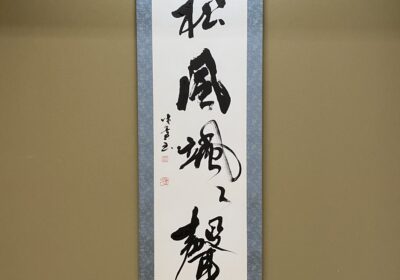 松風颯々聲